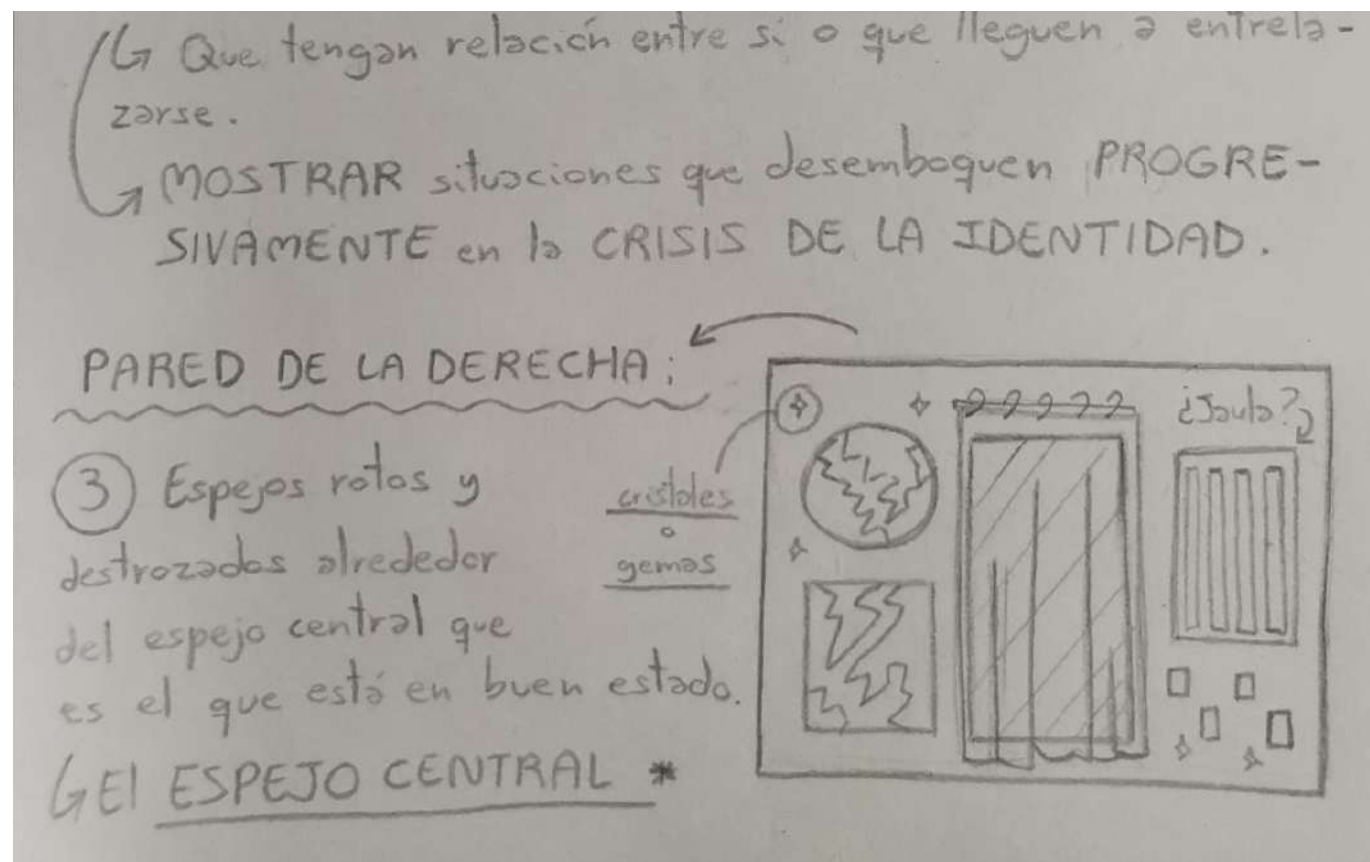 ↳ Que tengan relación entre sí o que lleguen a entrela-
zarse.
↳ MOSTRAR situaciones que desemboquen PROGRE-
SIVAMENTE en la CRISIS DE LA IDENTIDAD.
PARED DE LA DERECHA:
③ Espejos rotos y
destrozados alrededor
del espejo central que
es el que está en buen estado.
↳ El ESPEJO CENTRAL *
cristales
o
gemas
¿Jaula?